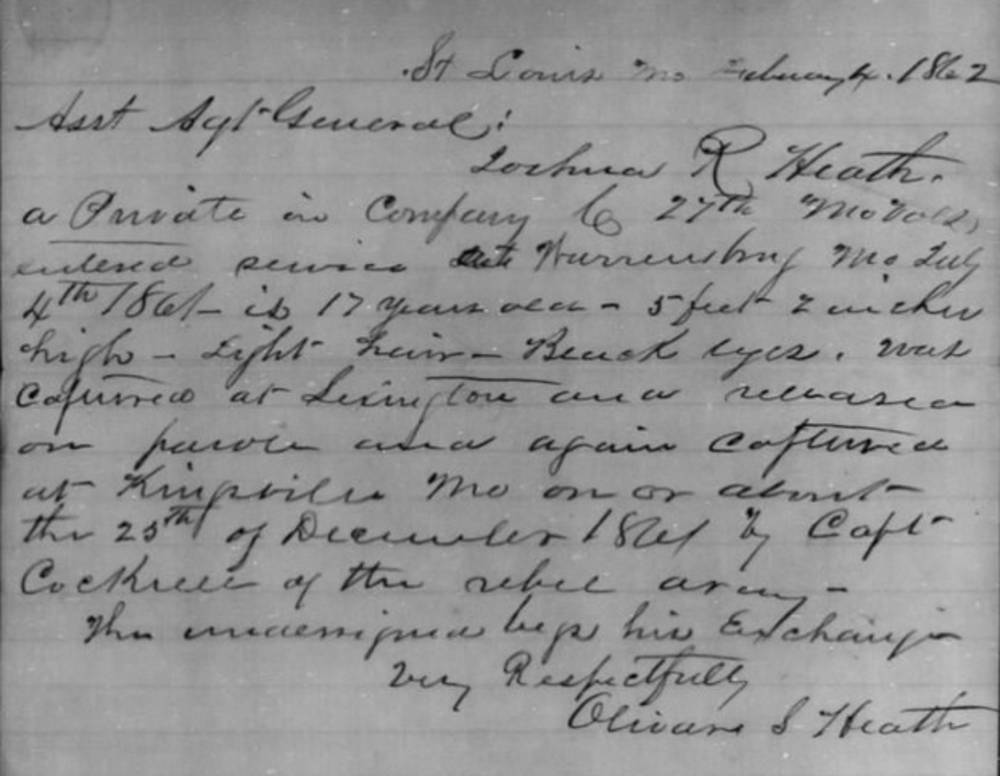 St Louis Mo February 4. 1862
Asst Agt General:
Joshua R Heath.
a Private in Company C 27th Mo Vols,
entered service at Warrensburg Mo July
4th 1861 – is 17 years old – 5 feet 2 inches
high – Light hair – Black eyes. was
captured at Lexington and released
on parole and again captured
at Kingsville Mo on or about
the 25th of December 1861 by Capt
Cockrell of the rebel army –
The undersigned begs his Exchange
Very Respectfully
S Heath